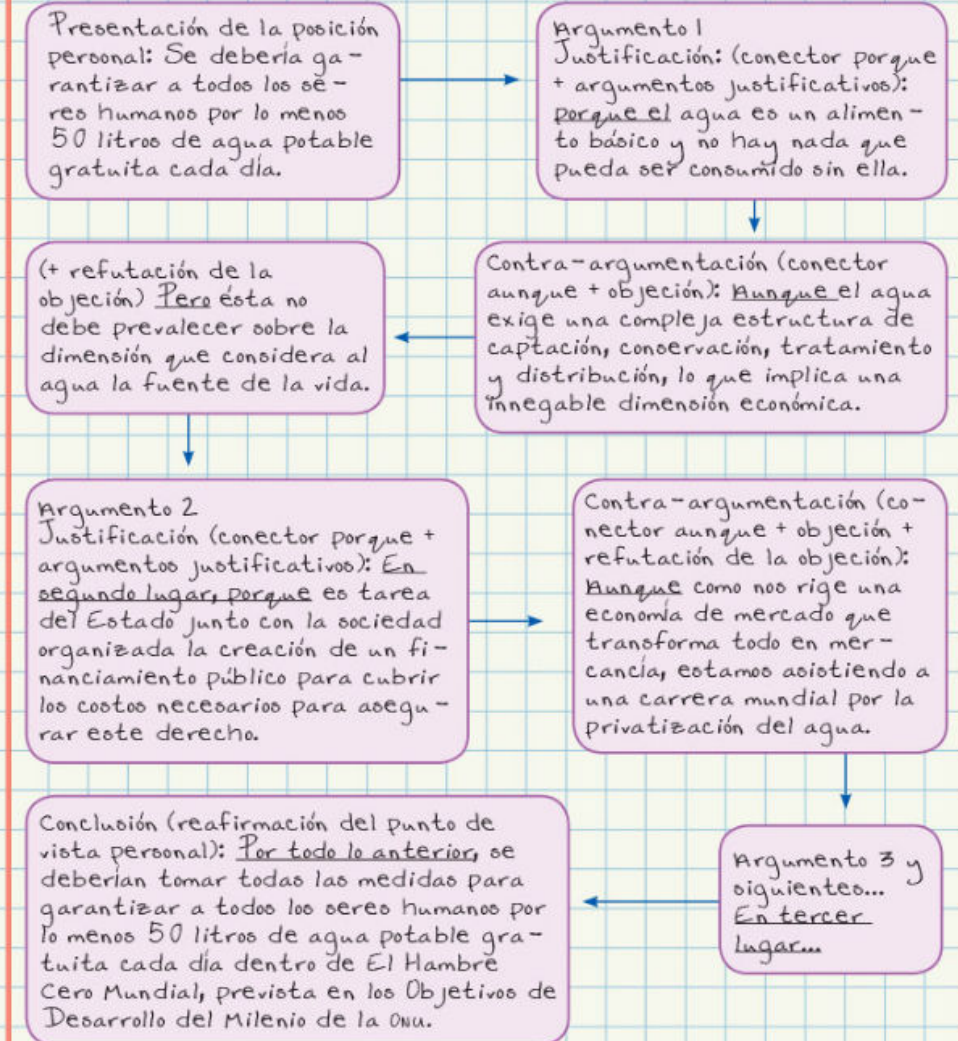 Presentación de la posición
personal: Se debería ga-
rantizar a todos los se-
res humanos por lo menos
50 litros de agua potable
gratuita cada día.
Argumento 1
Justificación: (conector porque
+ argumentos justificativos):
porque el agua es un alimen-
to básico y no hay nada que
pueda ser consumido sin ella.
Contra-argumentación (conector
aunque + objeción): Aunque el agua
exige una compleja estructura de
captación, conservación, tratamiento
y distribución, lo que implica una
innegable dimensión económica.
(+ refutación de la
objeción) Pero ésta no
debe prevalecer sobre la
dimensión que considera al
agua la fuente de la vida.
Argumento 2
Justificación (conector porque +
argumentos justificativos): En
segundo lugar, porque es tarea
del Estado junto con la sociedad
organizada la creación de un fi-
nanciamiento público para cubrir
los costos necesarios para asegu-
rar este derecho.
Contra-argumentación (co-
nector aunque + objeción +
refutación de la objeción):
Aunque como nos rige una
economía de mercado que
transforma todo en mer-
cancía, estamos asistiendo a
una carrera mundial por la
privatización del agua.
Argumento 3 y
siguientes...
En tercer
lugar...
Conclusión (reafirmación del punto de
vista personal): Por todo lo anterior, se
deberían tomar todas las medidas para
garantizar a todos los seres humanos por
lo menos 50 litros de agua potable gra-
tuita cada día dentro de El Hambre
Cero Mundial, prevista en los Objetivos de
Desarrollo del Milenio de la ONU.